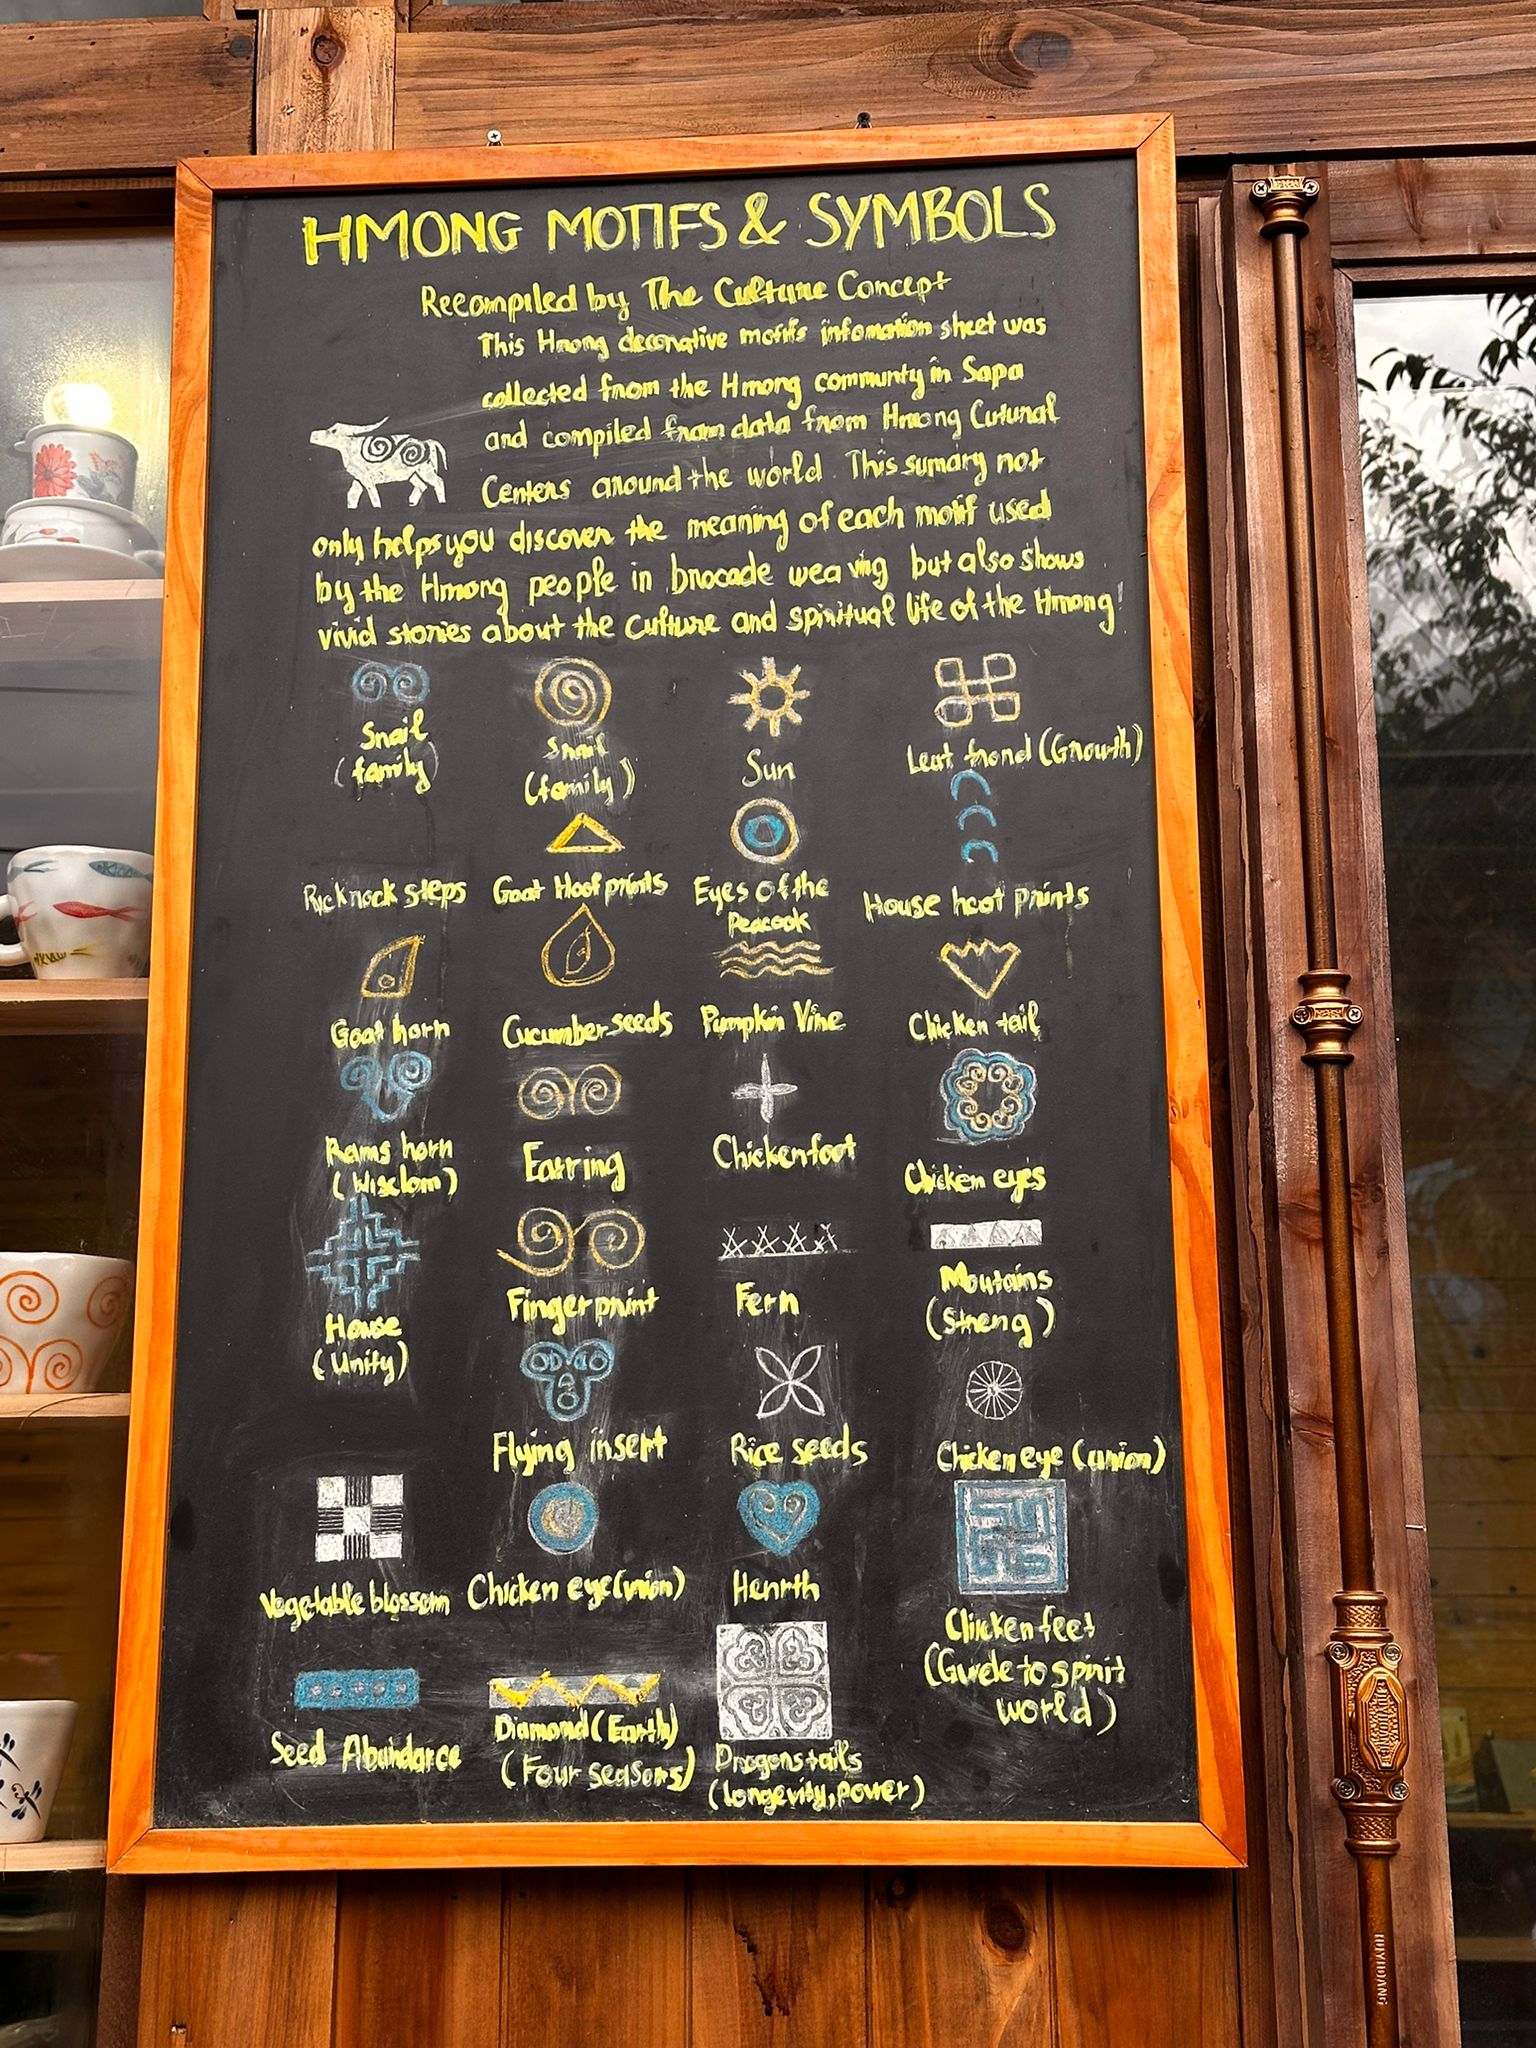 HMONG MOTIFS & SYMBOLS
Recompiled by The Culture Concept
This Hmong decorative motifs infomation sheet was
collected from the Hmong community in Sapa
and compiled from data from Hmong Cutural
Centers around the world. This sumary not
only helps you discover the meaning of each motif used
by the Hmong people in brocade weaving but also shows
vivid stories about the culture and spiritual life of the Hmong!
Snail
(family)
Snail
(family)
Sun
Leat frond (Growth)
Rick rack steps
Goat Hoof prints
Eyes of the
Peacook
House hoot prints
Goat horn
Cucumber seeds
Pumpkin Vine
Chicken tail
Rams horn
(Wisdom)
Earring
Chicken foot
Chicken eyes
House
(Unity)
Finger print
Fern
Moutains
(Streng)
Flying insert
Rice seeds
Chicken eye (union)
Vegetable blossom
Chicken eye (union)
Henrth
Chicken feet
(Guide to spirit
world)
Seed Abundance
Diamond (Earth)
(Four seasons)
Dragons tails
(longevity, power)
HUYHOANG